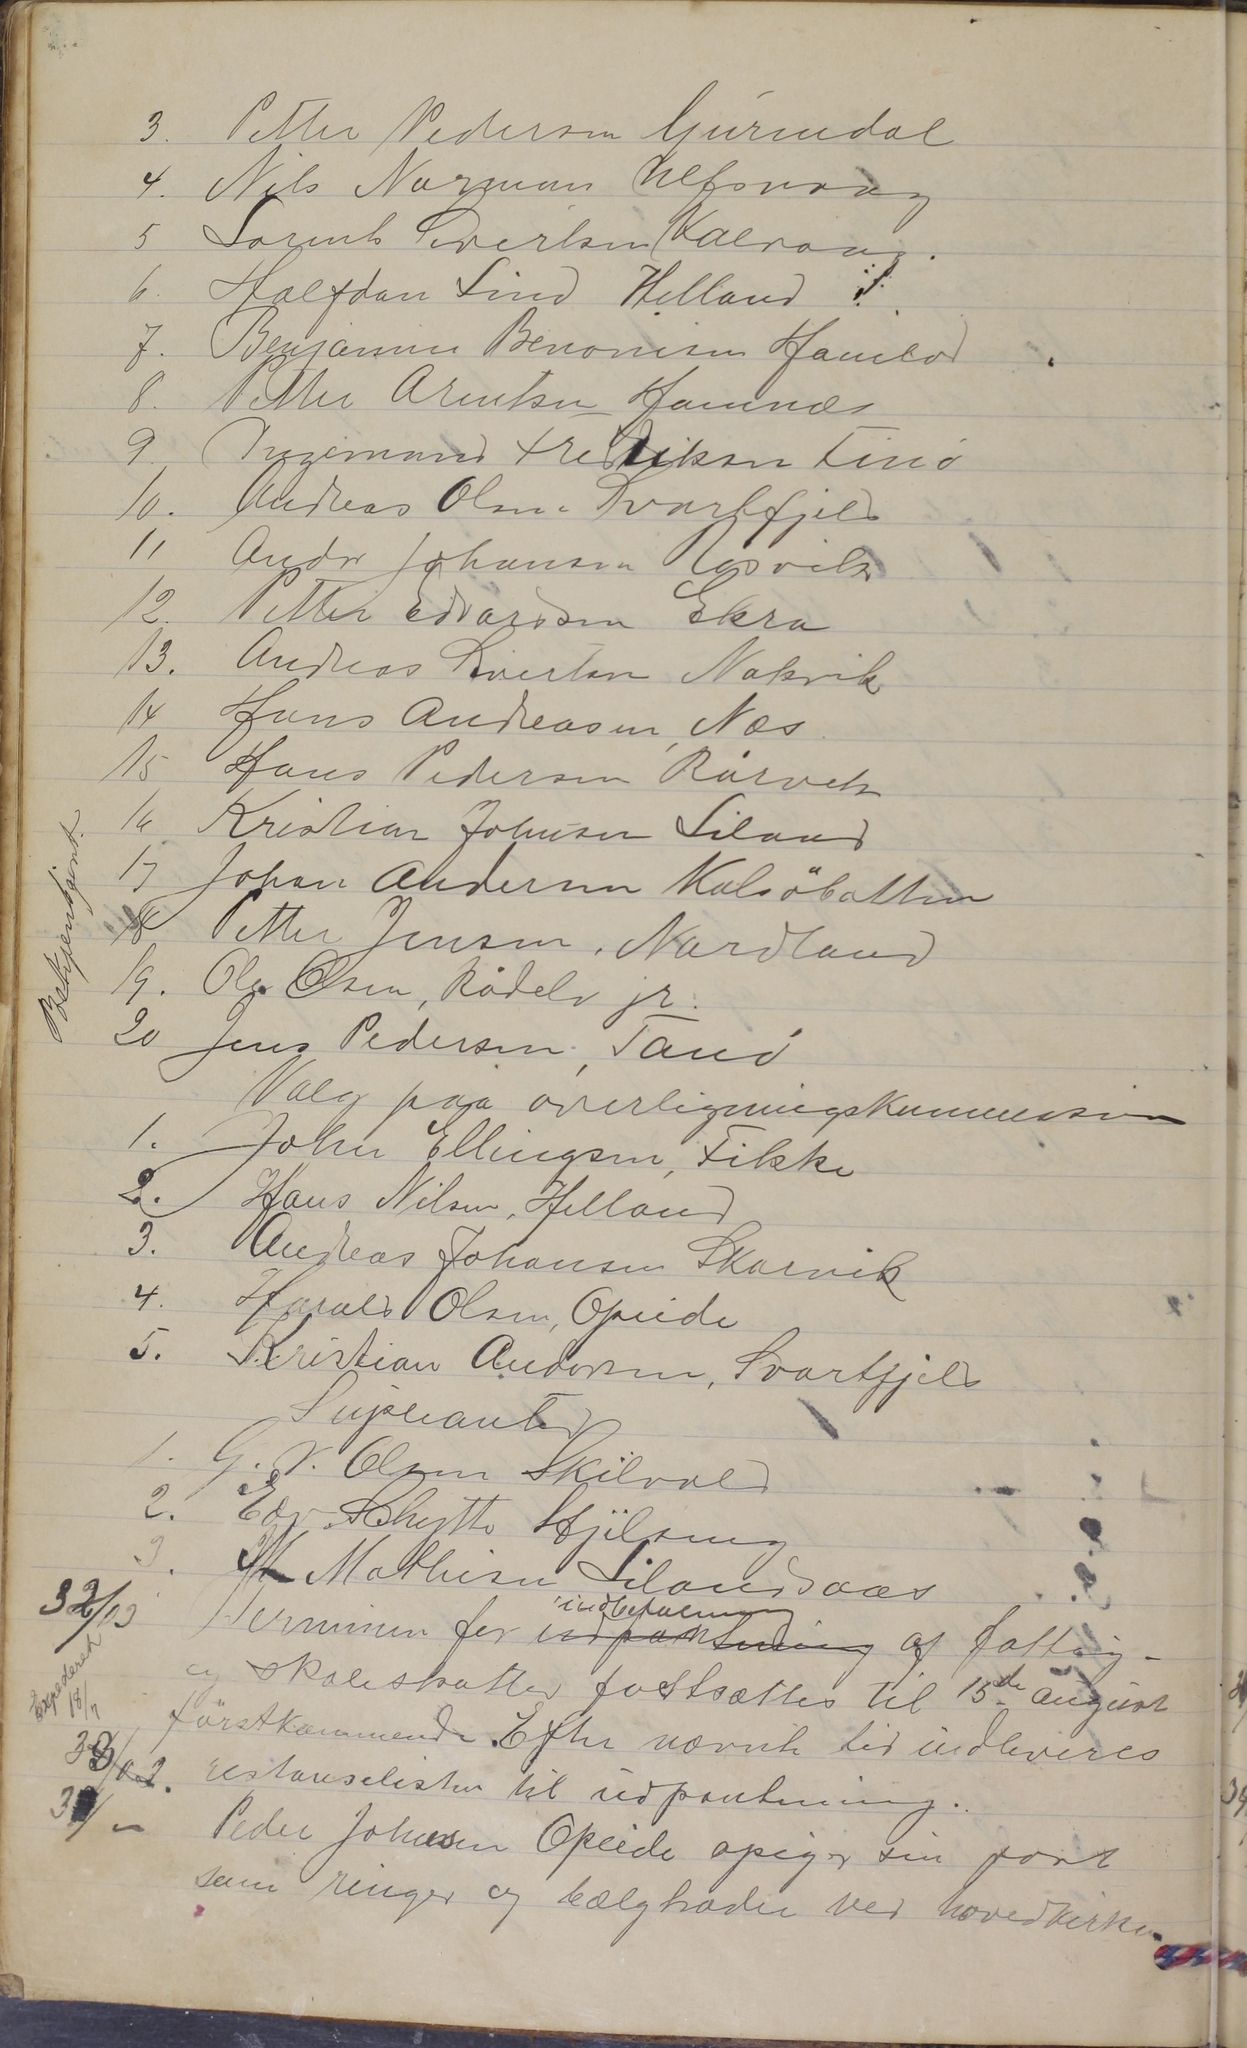 3. Petter Pedersen Gürendal
4. Nils Norman Ulfsvaag
5 Lorents Sivertsen Kalvaag.
6. Halfdan Lind Helland
7. Benjamin Benonisen
8. Petter Arentsen Hamnæs
9. Ingemand Fredriksen Finö
10. Andreas Olsen Svartfjeld
11 Andor Johansen Rösvik
12. Petter Edvardsen Ekra
13. Andreas Sivertsen Nakvik
14 Hans Andreasen, Næs
15 Hans Pedersen Rörvik
16 Kristian Johnsen Liland
17 Johan Andersen Kalsöbatten
18 Petter Jensen, Nordland
19. Ole Olsen, Rödelv jr.
20 Jens Pedersen, Tanö
Bekjentgjort.
Valg paa overligningskommission
1. John Ellingsen, Fikke
2. Hans Nilsen, Helland
3. Andreas Johansen Skarvik
4. Harald Olsen, Opeide
5. Kristian Andersen, Svartfjeld
Supleanter
1. G. V. Olsen Skilvald
2. Edv. Schytte
3. Mathisen Lilandsaas
32/03 Terminen for udpantning indbetaling af fattig-
og skoleskatter fastsættes til 15de august
Expederet 18/7
førstkommende. Efter nævnte tid indleveres
33/03. restanselisten til udpantning.
Peder Johnsen Opeide opsiger sin post
som ringer og bælgtræder ved hovedkirken.